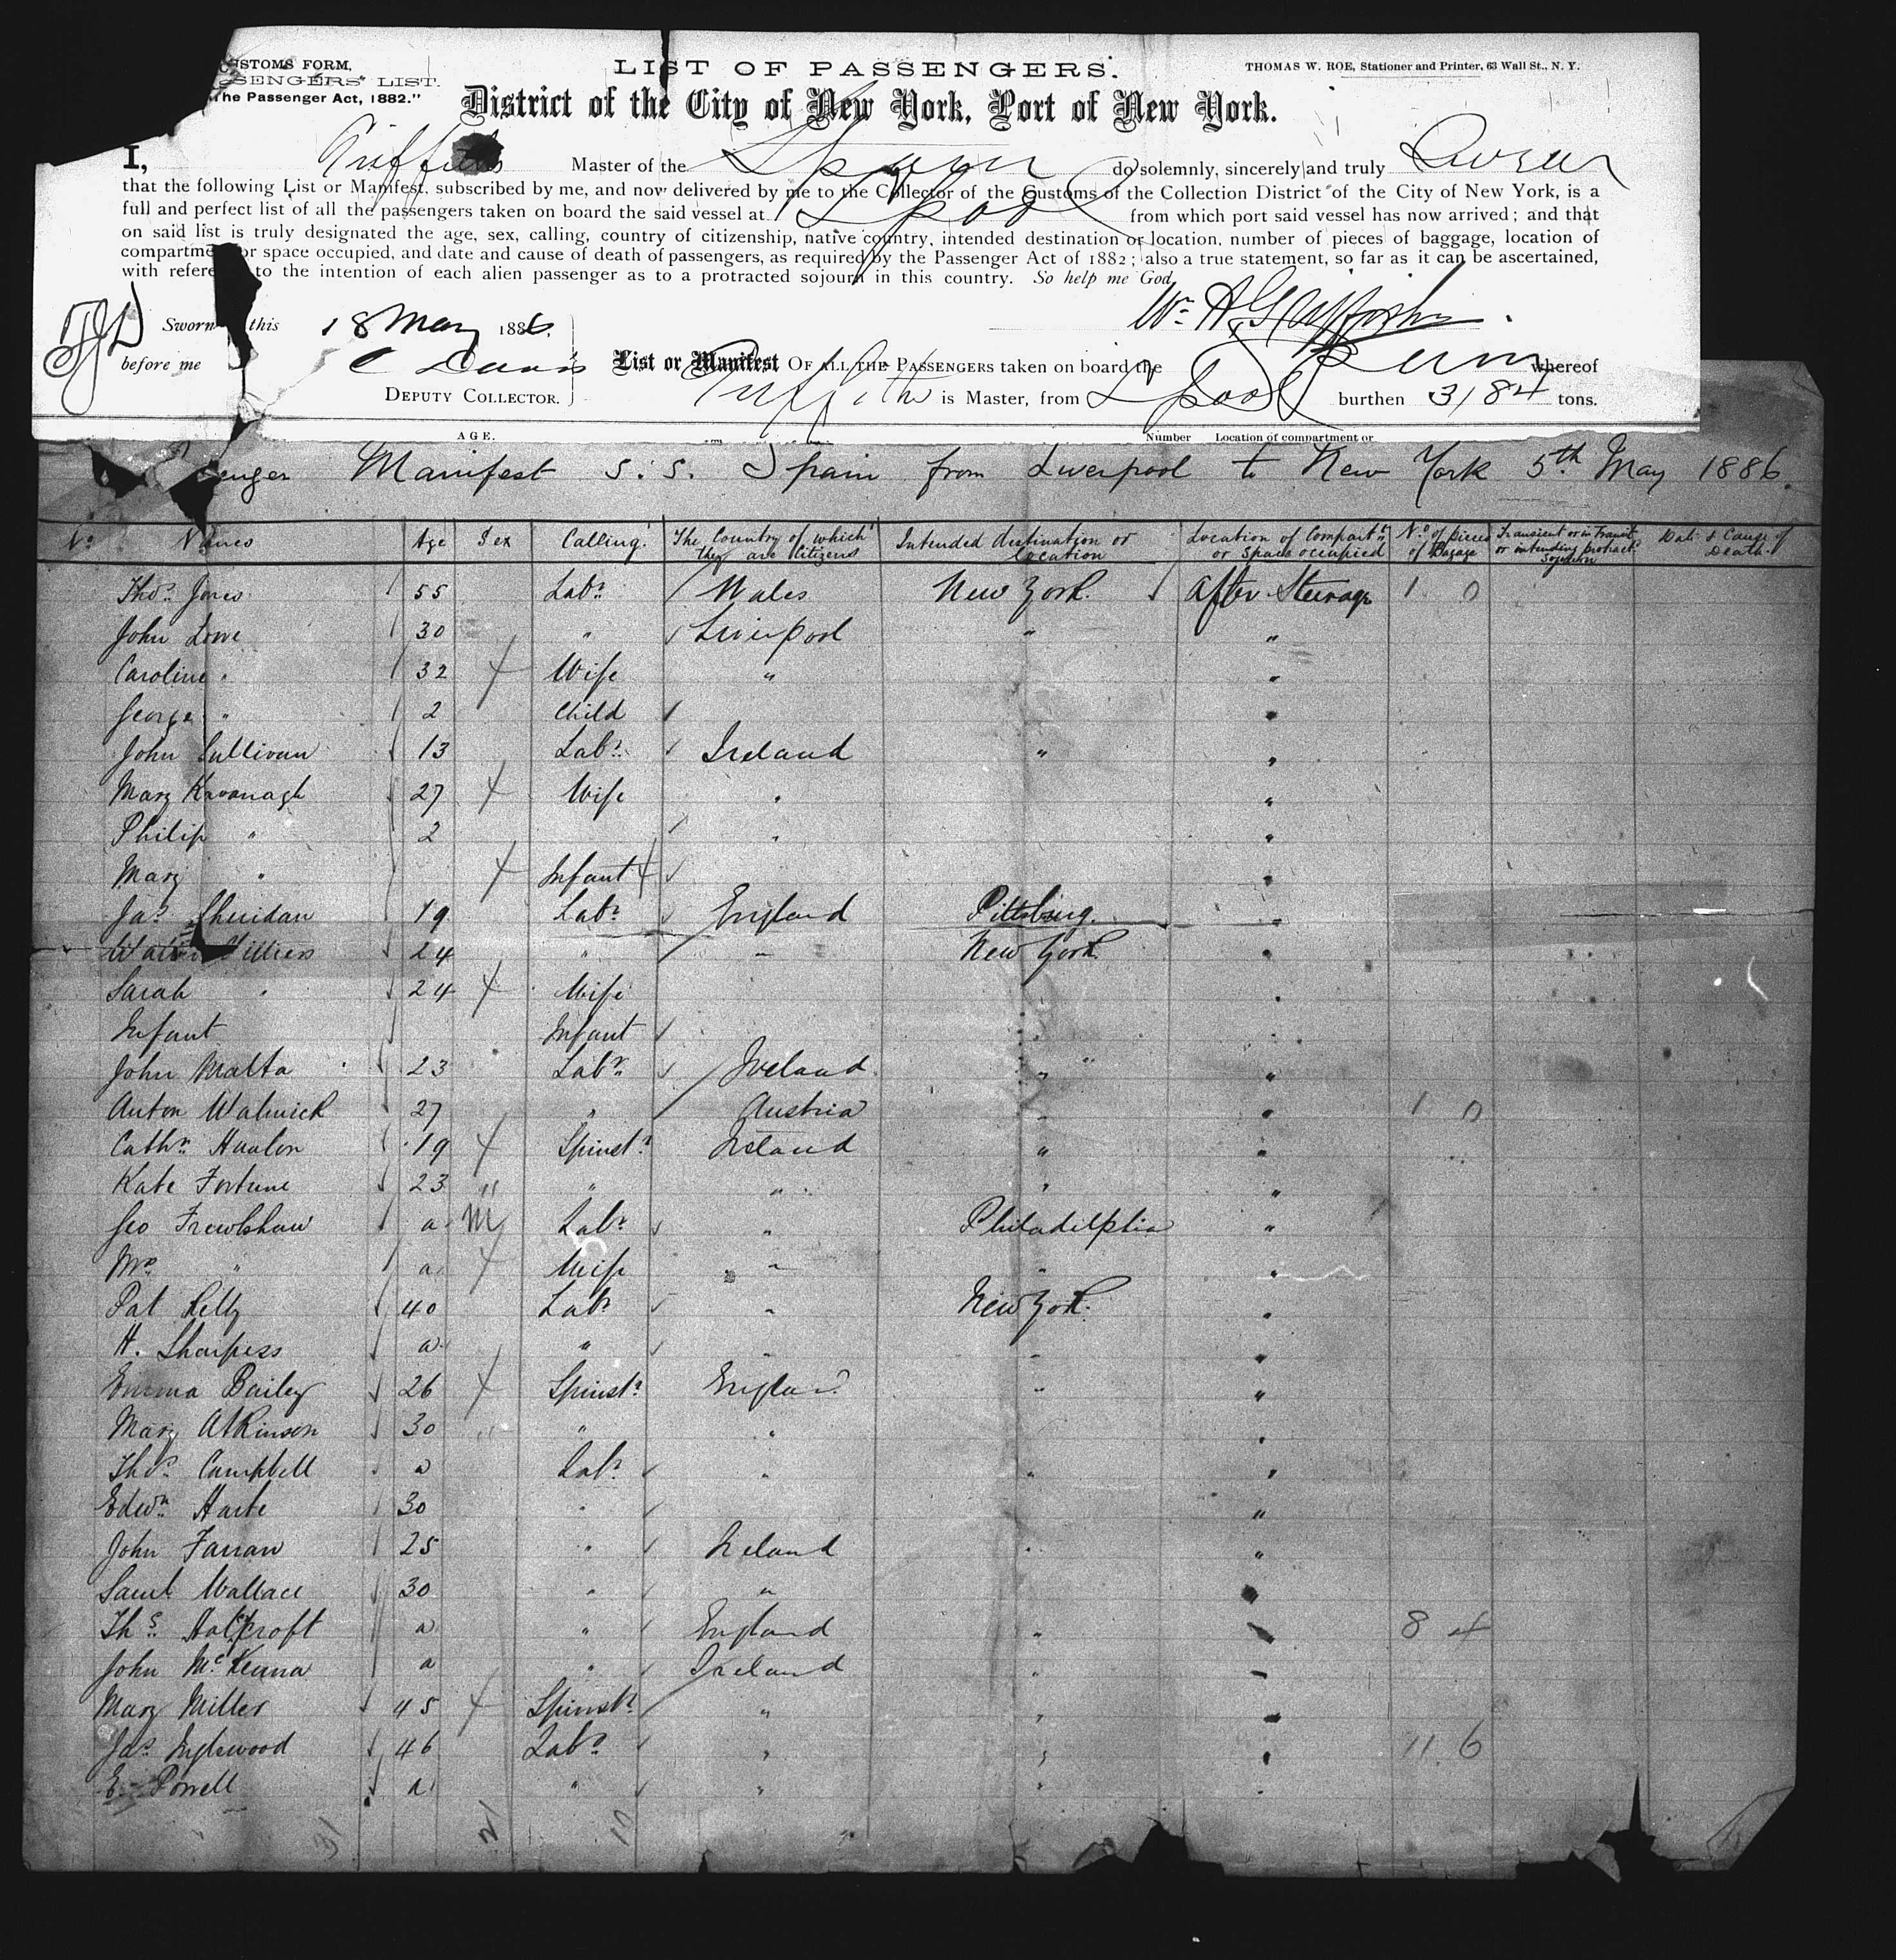 CUSTOMS FORM,
SENGERS' LIST.
The Passenger Act, 1882."
LIST OF PASSENGERS.
THOMAS W. ROE, Stationer and Printer, 63 Wall St., N. Y.
District of the City of New York, Port of New York.
I, Griffiths Master of the Spain do solemnly, sincerely and truly Swear
that the following List or Manifest, subscribed by me, and now delivered by me to the Collector of the Customs of the Collection District of the City of New York, is a
full and perfect list of all the passengers taken on board the said vessel at L'pool from which port said vessel has now arrived; and that
on said list is truly designated the age, sex, calling, country of citizenship, native country, intended destination or location, number of pieces of baggage, location of
compartme or space occupied, and date and cause of death of passengers, as required by the Passenger Act of 1882; also a true statement, so far as it can be ascertained,
with refere to the intention of each alien passenger as to a protracted sojourn in this country. So help me God.
Wm A Griffiths.
Sworn this 18 May 1886.
before me C Davis
DEPUTY COLLECTOR.
List or Manifest OF ALL THE PASSENGERS taken on board the Spain whereof
Griffiths is Master, from L'pool burthen 3184 tons.
AGE. Number Location of compartment or
enger Manifest S.S. Spain from Liverpool to New York 5th May 1886.
No Names Age Sex Calling The Country of which they are Citizens Intended destination or location Location of Compartt or Space occupied No of pieces of Bagage Transient or in Transit or intending protractd Sojourn Date & Cause of Death
Thos Jones 55 Labr Wales New York After Steerage 1 0
John Lowe 30 " Liverpool " "
Caroline " 32 Wife " "
George " 2 Child "
John Sullivan 13 Labr Ireland " "
Mary Kavanagh 27 Wife " "
Philip " 2 " "
Mary " Infant "
Jas Sheridan 19 Labr England Pittsburg. "
Walter Villiers 24 " " New York "
Sarah " 24 Wife "
Infant Infant "
John Malta 23 Labr Ireland " "
Anton Walnick 27 " Austria " " 1 0
Cathn Hanlon 19 Spinstr Ireland " "
Kate Fortune 23 " " " " "
Geo Frewbshaw a M Labr " Philadelphia "
Mrs " a Wife " " "
Pat Kelly 40 Labr " New York. "
H. Sharpess a " " " "
Emma Bailey 26 Spinstr England " "
Mary Atkinson 30 " " " "
Thos Campbell a Labr " " "
Edwn Harte 30 " "
John Farran 25 " Ireland " "
Saml Wallace 30 " " "
Ths Holcroft a " England " " 8 4
John McKenna a " Ireland " "
Mary Miller 45 Spinstr " " "
Jas Inglewood 46 Labr " " " 11 6
E. Powell a " " " "
31 21 10